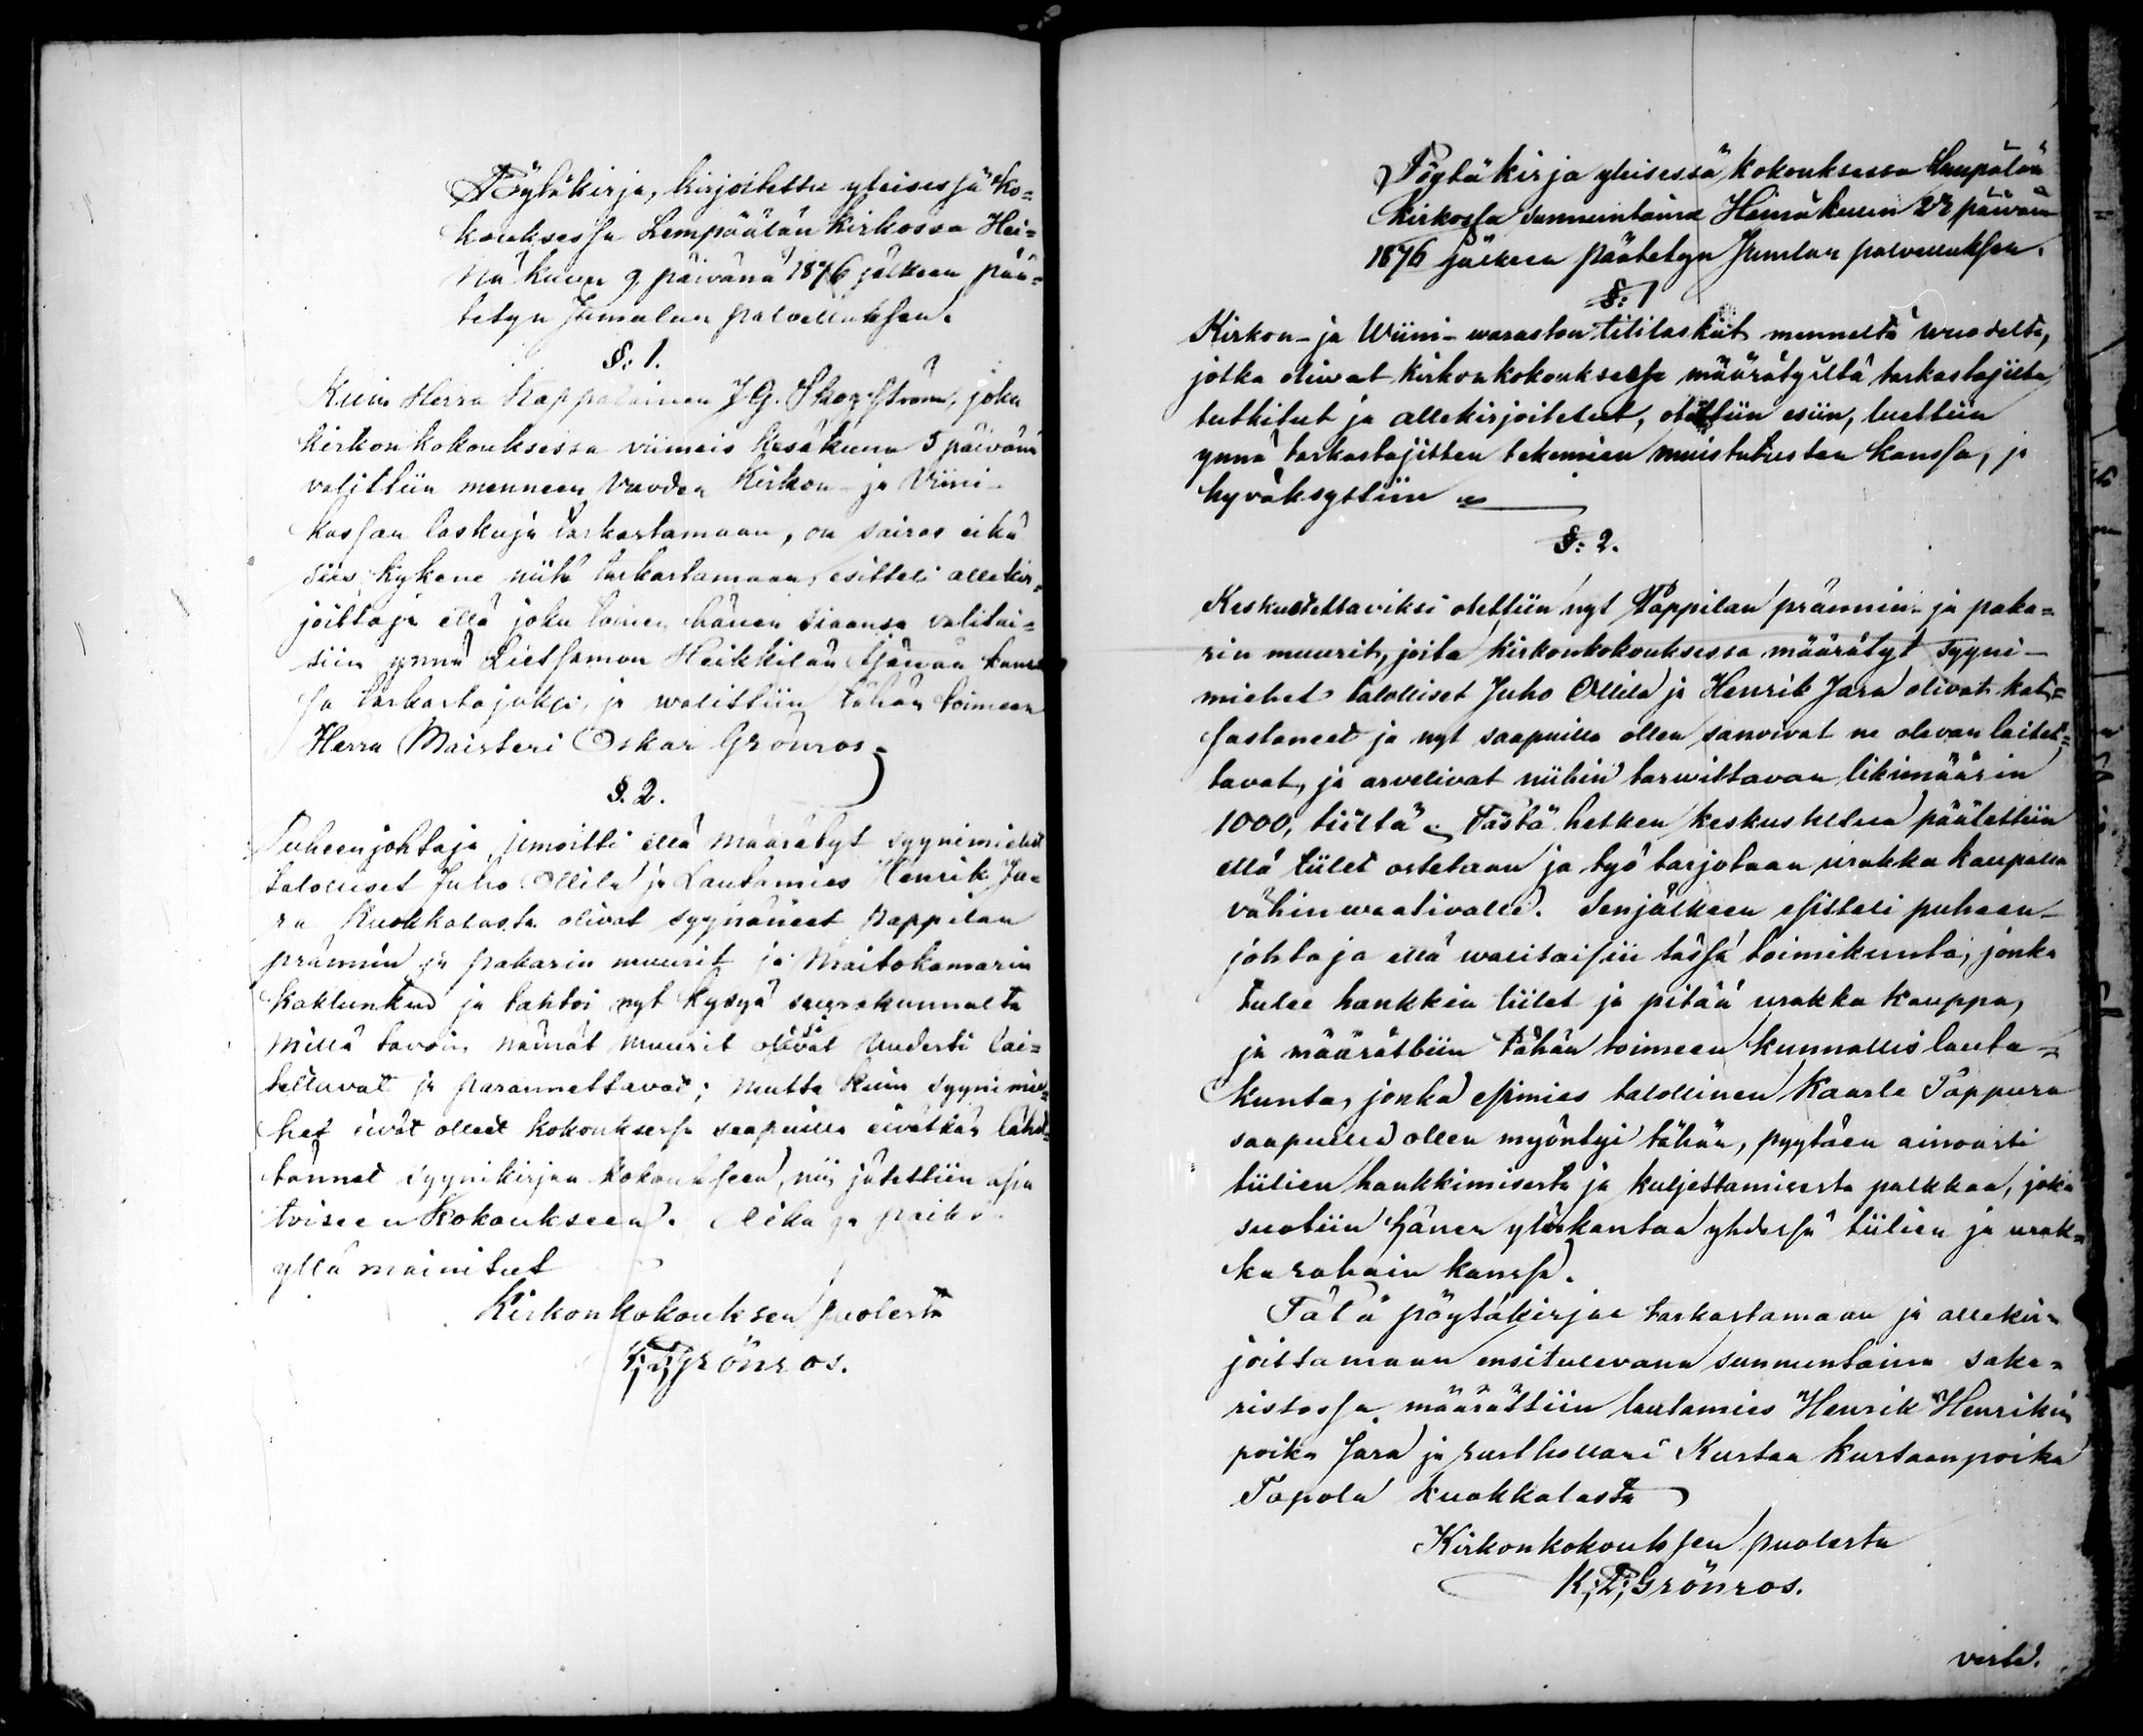 Pöytäkirja, kirjoitettu yleisessä ko-
kouksessa Lempäälän kirkossa Hei-
näkuun 9 päivänä 1876 jälkeen pää-
tetyn Jumalan palvelluksen.
§: 1.
Kuin Herra Kappalainen J. G. joka
kirkonkokouksessa viimeis Kesäkuun 5 päivänä
valittiin menneen vuoden Kirkon- ja Viini-
kassan laskuja tarkastamaan, on sairas eikä
siis kykene niitä tarkastamaan, esitteli allekir-
joittaja että joku toinen hänen siaansa valitai-
siin ynnä Lietsamon Heikkilän kans-
sa tarkastajaksi, ja walittiin tähän toimeen
Herra Maisteri Oskar Grönros.
§. 2.
Puheenjohtaja ilmoitti että määrätyt syynimiehet
talolliset Juho Ollila ja Lautamies Henrik Ja-
ra Kuokkalasta olivat syynäneet pappilan
prännin ja pakarin muurit ja Maitokamarin
kaklunkin ja tahtoi nyt kysyä seurakunnalta
millä tavoin nämät muurit olisivat Uudesti lai-
tettavat ja parannettavat; mutta kuin syynimie-
het eivät olleet kokouksessa saapuilla eivätkä lähet-
tännet syynikirjaa kokoukseen, niin jätettiin asia
toiseen kokoukseen. Aika ja paikka
yllä mainitut
Kirkonkokouksen puolesta
K; T; Grönros.
Pöytäkirja yleisessä kokouksessa Lempäälän
kirkossa sunnuntaina Heinäkuun 23 päivänä
1876 jälkeen päätetyn Jumalan palvelluksen.
§: 1
Kirkon- ja Wiini-waraston tililaskut menneltä wuodelta,
jotka oliwat kirkonkokouksessa määrätyiltä tarkastajilta
tutkitut ja allekirjoitetut, otettiin esiin, luettiin
ynnä tarkastajitten tekemien muistutusten kanssa, ja
hyväksyttiin
§: 2.
Keskusteltaviksi otettiin nyt Pappilan prännin- ja paka-
rin muurit, joita kirkonkokouksessa määrätyt syyni-
miehet talolliset Juho Ollila ja Henrik Jara olivat kat-
sastaneet ja nyt saapuilla ollen sanoivat ne olevan laitet-
tavat, ja arvelivat niihin tarwittavan likimäärin
1000, tiiltä. Tästä hetken keskusteltua päätettiin
että tiilet ostetaan ja työ tarjotaan urakka kaupalla
vähinwaativalle. Senjälkeen esitteli puheen-
johtaja että walitaisiin tässä toimikunta, jonka
tulee hankkia tiilet ja pitää urakka kauppa,
ja määrättiin tähän toimeen kunnallislauta-
kunta, jonka esimies talollinen Kaarle Pappura
saapuilla ollen myöntyi tähän, pyytäen ainoasti
tiilien hankkimisesta ja kuljettamisesta palkkaa, joka
suotiin hänen yläskantaa yhdessä tiilien ja urak-
ka rahain kanssa.
Tätä pöytäkirjaa tarkastamaan ja allekir-
joittamaan ensitulevana sunnuntaina saka-
ristossa, määrättiin lautamies Henrik Henrikin
poika Jara ja rusthollari Kustaa Kustaanpoika
Tapola Kuokkalasta
Kirkonkokouksen puolesta
K; T; Grönros.